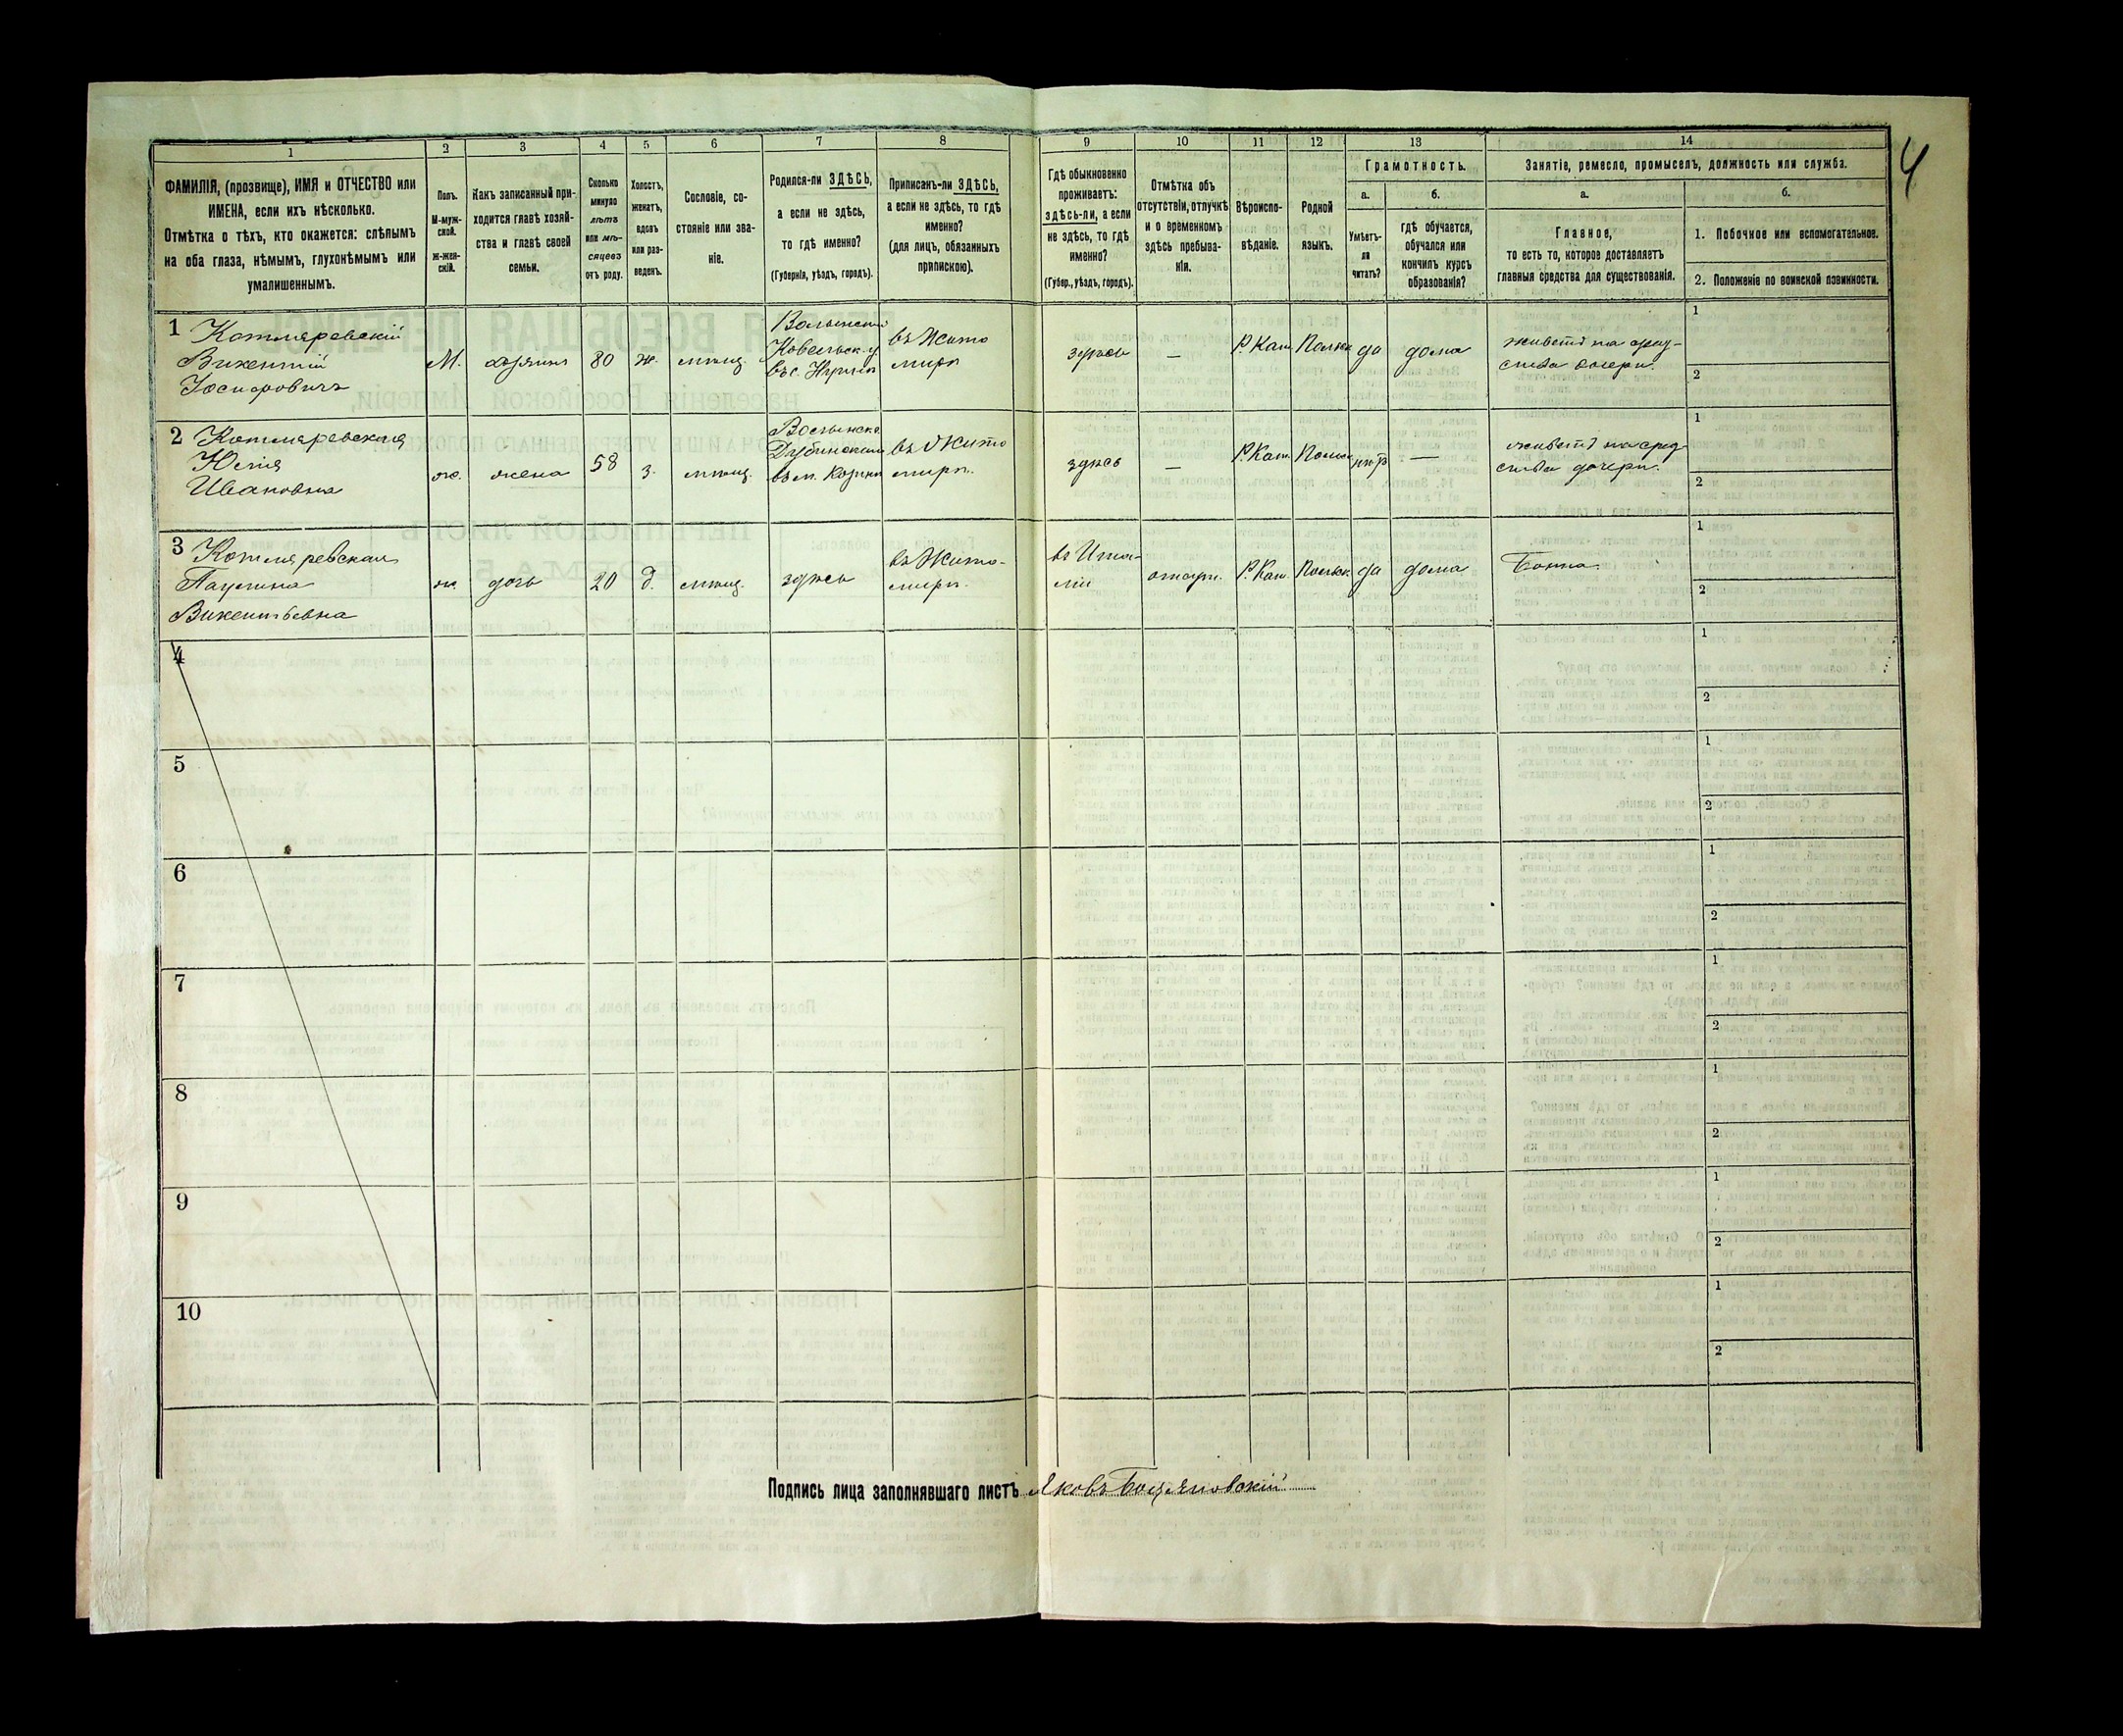 1 2 3 4 5 6 7 8 9 10 11 12 13 14
4
ФАМИЛІЯ, (прозвище), ИМЯ и ОТЧЕСТВО или
ИМЕНА, если ихъ нѣсколько.
Отмѣтка о тѣхъ, кто окажется: слѣпымъ
на оба глаза, нѣмымъ, глухонѣмымъ или
умалишеннымъ.
Полъ.
М-муж-
ской.
ж-жен-
скій.
Какъ записанный при-
ходится главѣ хозяй-
ства и главѣ своей
семьи.
Сколько
минуло
лѣтъ
или мѣ-
сяцевъ
отъ роду.
Холостъ,
женатъ,
вдовъ
или раз-
веденъ.
Сословіе, со-
стояніе или зва-
ніе.
Родился-ли ЗДѢСЬ,
а если не здѣсь,
то гдѣ именно?
(Губернія, уѣздъ, городъ).
Приписанъ-ли ЗДѢСЬ,
а если не здѣсь, то гдѣ
именно?
(для лицъ, обязанныхъ
припискою).
Гдѣ обыкновенно
проживаетъ:
здѣсь-ли, а если
не здѣсь, то гдѣ
именно?
(Губер., уѣздъ, городъ).
Отмѣтка объ
отсутствіи, отлучкѣ
и о временномъ
здѣсь пребыва-
ніи.
Вѣроиспо-
вѣданіе.
Родной
языкъ.
Грамотность.
а.
Умѣетъ-
ли
читать?
б.
гдѣ обучается,
обучался или
кончилъ курсъ
образованія?
Занятіе, ремесло, промыселъ, должность или служба.
а.
Главное,
то есть то, которое доставляетъ
главныя средства для существованія.
б.
1. Побочное или вспомогательное.
2. Положеніе по воинской повинности.
1 Котляревскій
Викентій
Іосифовичъ
М.
хозяинъ
80
ж.
мѣщ.
Волынской
Ковельск. у.
въ с.
въ Жито
мирѣ
здѣсь
—
Р. Кат.
Польск
да
дома
живетъ на сред-
ства дочери.
1
2
2 Котляревская
Юлія
Ивановна
ж.
жена
58
з.
мѣщ.
Волынска
Дубенскаго
въ м.
въ Жито
мирѣ.
здѣсь
—
Р. Кат.
Польск
нѣтъ
—
живетъ на сред
ства дочери.
1
2
3 Котляревская
Паулина
Викентьевна
ж.
дочь
20
д.
мѣщ.
здѣсь
въ Жито-
мирѣ.
въ Ита-
ліи
отсут.
Р. Кат.
Польск.
да
дома
Бонна.
1
2
4
1
2
5
1
2
6
1
2
7
1
2
8
1
2
9
1
2
10
1
2
Подпись лица заполнявшаго листъ Яковъ Боцяновскій